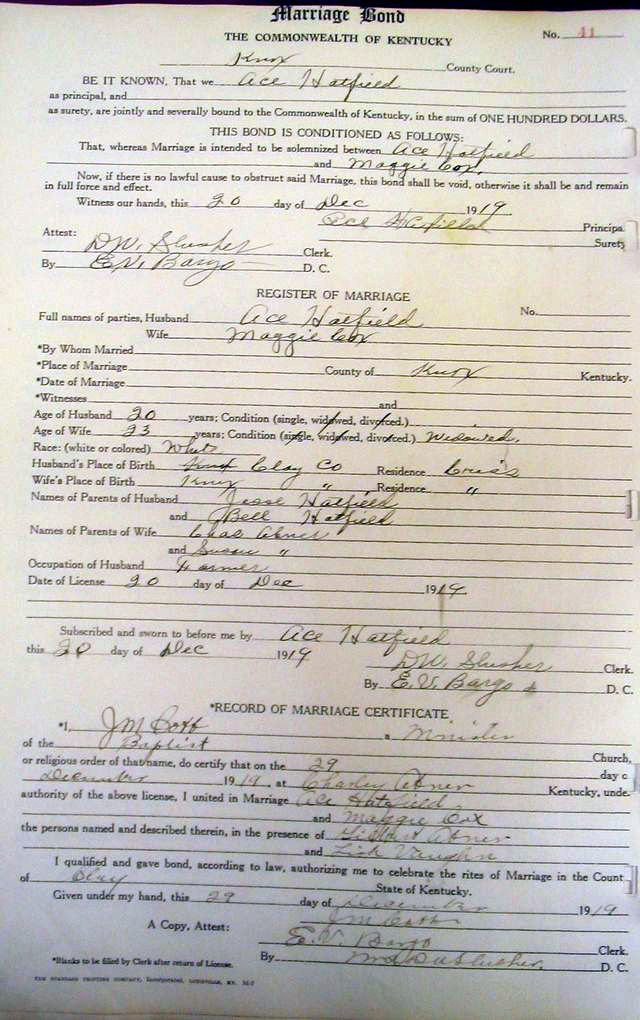 Marriage Bond
THE COMMONWEALTH OF KENTUCKY No. 41
Knox County Court.
BE IT KNOWN, That we Ace Hatfield
as principal, and
as surety, are jointly and severally bound to the Commonwealth of Kentucky, in the sum of ONE HUNDRED DOLLARS.
THIS BOND IS CONDITIONED AS FOLLOWS:
That, whereas Marriage is intended to be solemnized between Ace Hatfield
and Maggie Cox,
Now, if there is no lawful cause to obstruct said Marriage, this bond shall be void, otherwise it shall be and remain
in full force and effect.
Witness our hands, this 20 day of Dec 1919
Ace Hatfield Principa
Attest: Surety
D.W. Slusher Clerk.
By E.V. Bargo D. C.
REGISTER OF MARRIAGE
Full names of parties, Husband Ace Hatfield No.
Wife Maggie Cox
*By Whom Married
*Place of Marriage County of Knox Kentucky.
*Date of Marriage
*Witnesses and
Age of Husband 20 years; Condition (single, widowed, divorced.)
Age of Wife 23 years; Condition (single, widowed, divorced.) Widowed.
Race: (white or colored) White
Husband's Place of Birth Knox Clay Co Residence
Wife's Place of Birth Knox " Residence "
Names of Parents of Husband Jesse Hatfield
and Bell Hatfield
Names of Parents of Wife Chas Abner
and Susan "
Occupation of Husband Farmer
Date of License 20 day of Dec 1919
Subscribed and sworn to before me by Ace Hatfield
this 20 day of Dec 1919
D.W. Slusher Clerk.
By E.V. Bargo D. C.
*RECORD OF MARRIAGE CERTIFICATE
*I, J M Cobb a Minister
of the Baptist Church,
or religious order of that name, do certify that on the 29 day o
December 1919 at Charley Abner Kentucky, unde
authority of the above license, I united in Marriage Ace Hatfield
and Maggie Cox
the persons named and described therein, in the presence of Gilbert Abner
and Vaughn
I qualified and gave bond, according to law, authorizing me to celebrate the rites of Marriage in the Count
of Clay State of Kentucky.
Given under my hand, this 29 day of December 1919
J M Cobb
A Copy, Attest: E. V. Bargo Clerk.
*Blanks to be filled by Clerk after return of License. By Slusher. D. C.
THE STANDARD PRINTING COMPANY, Incorporated, LOUISVILLE, KY.